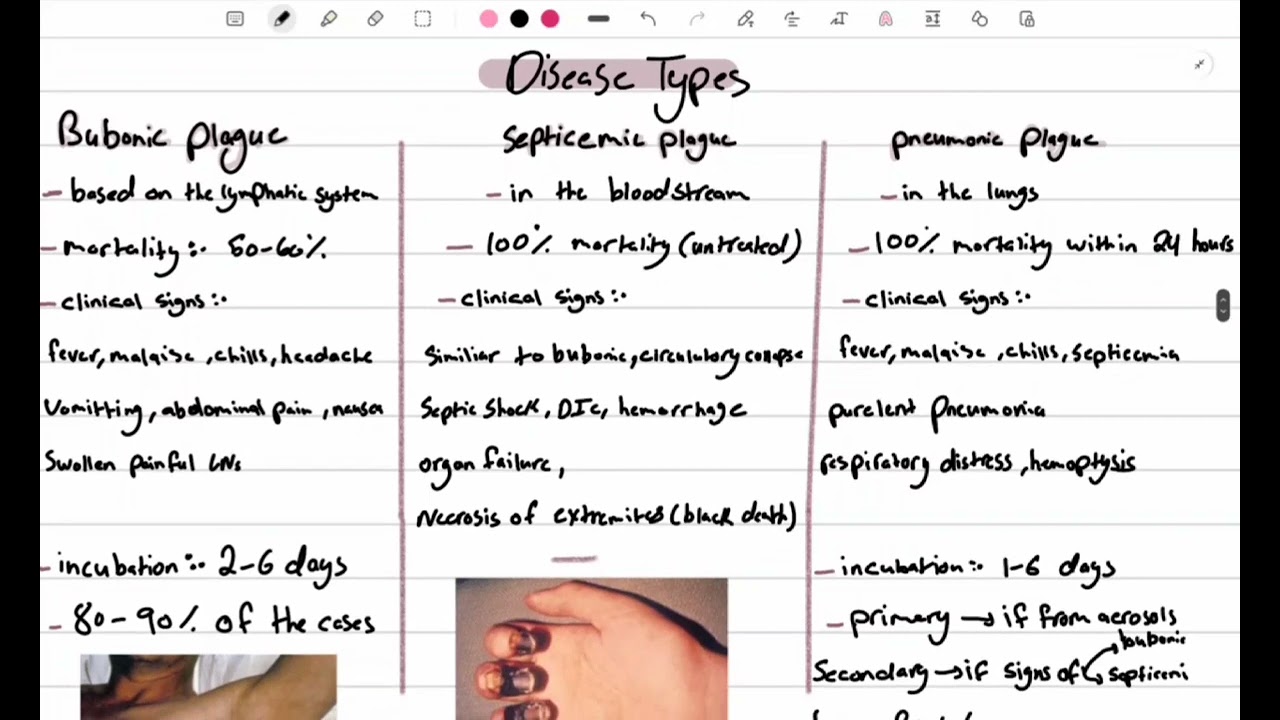 Disease Types
Bubonic plague
- based on the lymphatic system
- mortality :- 50-60%
- clinical signs :-
fever, malaise, chills, headache
Vomitting, abdominal pain, nausea
Swollen painful LNs
- incubation :- 2-6 days
- 80-90% of the cases
Septicemic plague
- in the bloodstream
- 100% mortality (untreated)
- clinical signs :-
Similiar to bubonic, circulutory collapse
Septic Shock, DIC, hemorrhage
organ failure,
Necrosis of extremites (black death)
pneumonic plague
- in the lungs
- 100% mortality within 24 hours
- clinical signs :-
fever, malaise, chills, septicemia
purelent pneumonia
respiratory distress, hemoptysis
- incubation :- 1-6 days
- primary → if from aerosols
bubonic
Secondary → if signs of septicemi